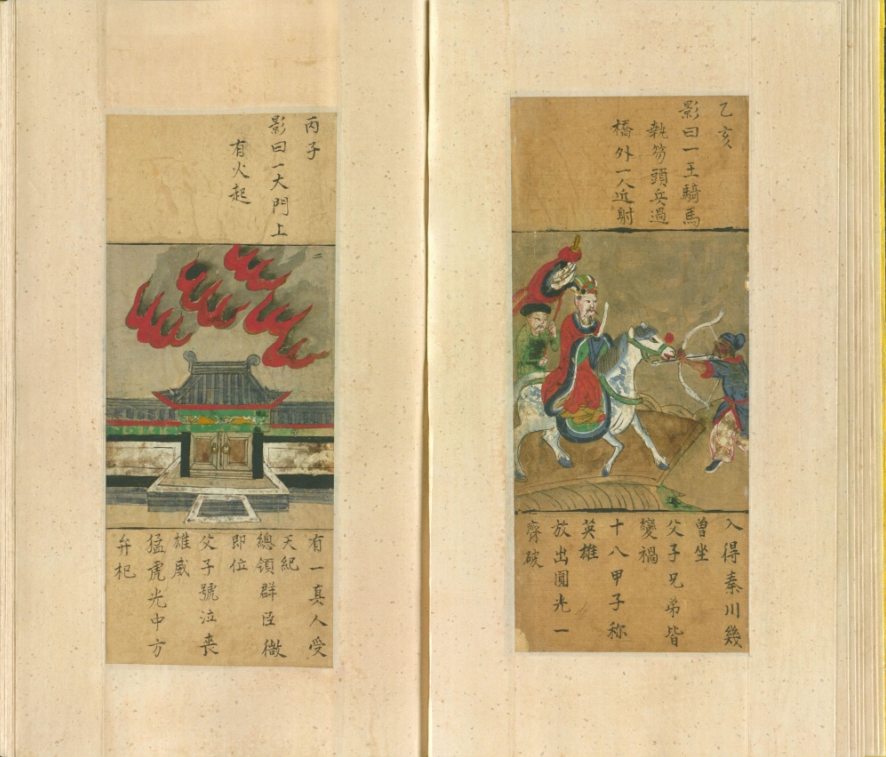 乙亥
影曰一王騎馬
執笏頭兵過
橋外一人近射
入得秦川幾
曾坐
父子兄弟皆
變禍
十八甲子称
英雄
放出圓光一
齊破
丙子
影曰一大門上
有火起
有一真人受
天紀
總領群臣
即位
父子號泣喪
雄威
猛虎光中方
弁杞